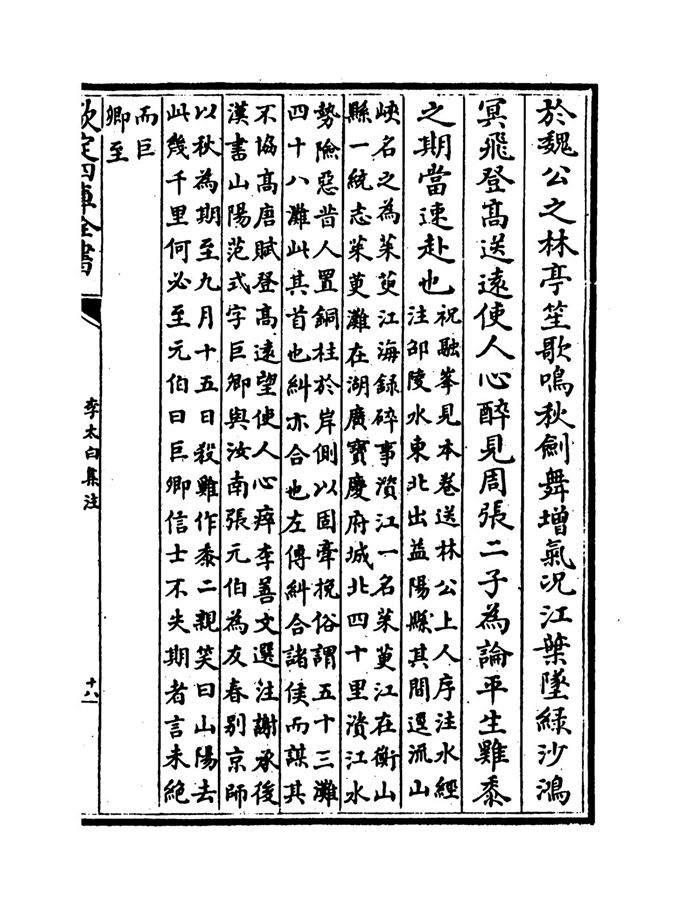 於魏公之林亭笙歌鳴秋劍舞增氣况江葉墜綠沙鴻
冥飛登髙送遠使人心醉見周張二子為論平生雞黍
之期當速赴也
祝融峯見本卷送林公上人序注水經
注邵陵水東北出益陽縣其間逕流山
峽名之為茱萸江海録碎事濱江一名茱萸江在衡山
縣一統志茱萸灘在湖廣寶慶府城北四十里資江水
勢險惡昔人置銅柱於岸側以固牽挽俗謂五十三灘
四十八灘此其首也糾亦合也左傳糾合諸侯而謀其
不協髙唐賦登髙遠望使人心瘁李善文選注謝承後
漢書山陽范式字巨卿與汝南張元伯為友春别京師
以秋為期至九月十五日殺雞作黍二親笑曰山陽去
此幾千里何必至元伯曰巨卿信士不失期者言未絶
而巨
卿至
欽定四庫全書
李太白集注
十八